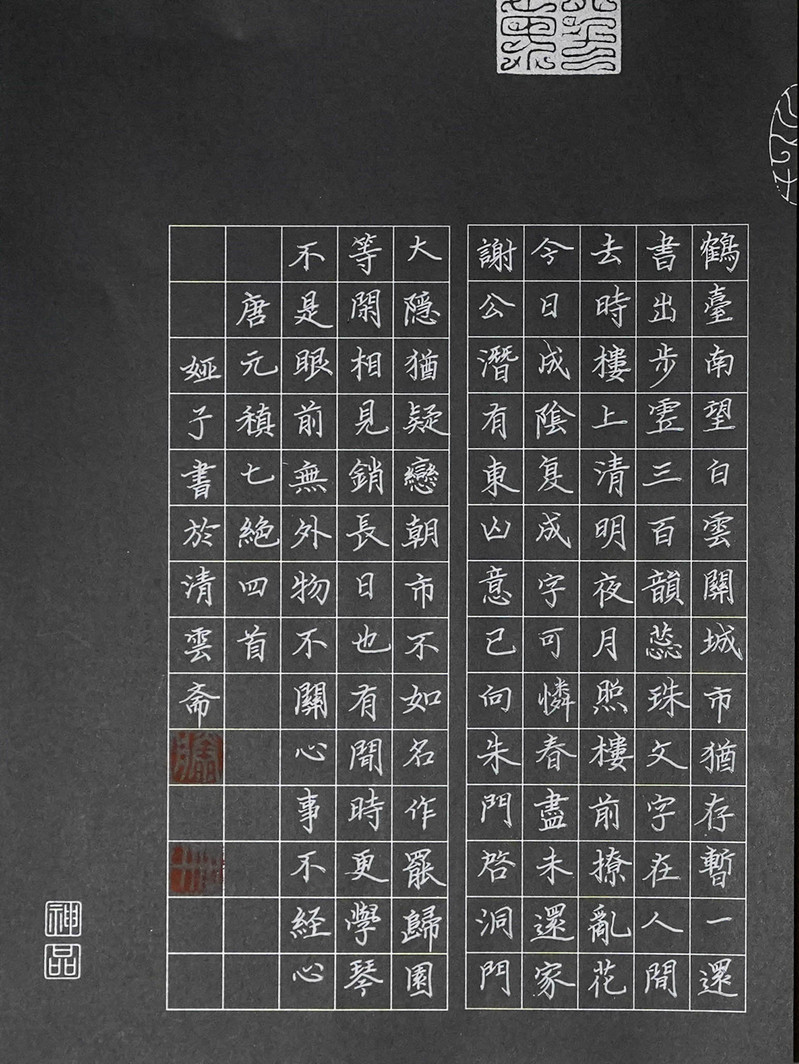 鶴臺南望白雲關城市猶存暫一還
書出步虛三百韻蕊珠文字在人間
去時樓上清明夜月照樓前撩亂花
今日成陰复成字可憐春盡未還家
謝公潛有東山意已向朱門啓洞門
大隱猶疑戀朝市不如名作罷歸園
等閑相見銷長日也有閒時更學琴
不是眼前無外物不關心事不經心
唐元稹七絕四首
娅子書於清雲斋
神品